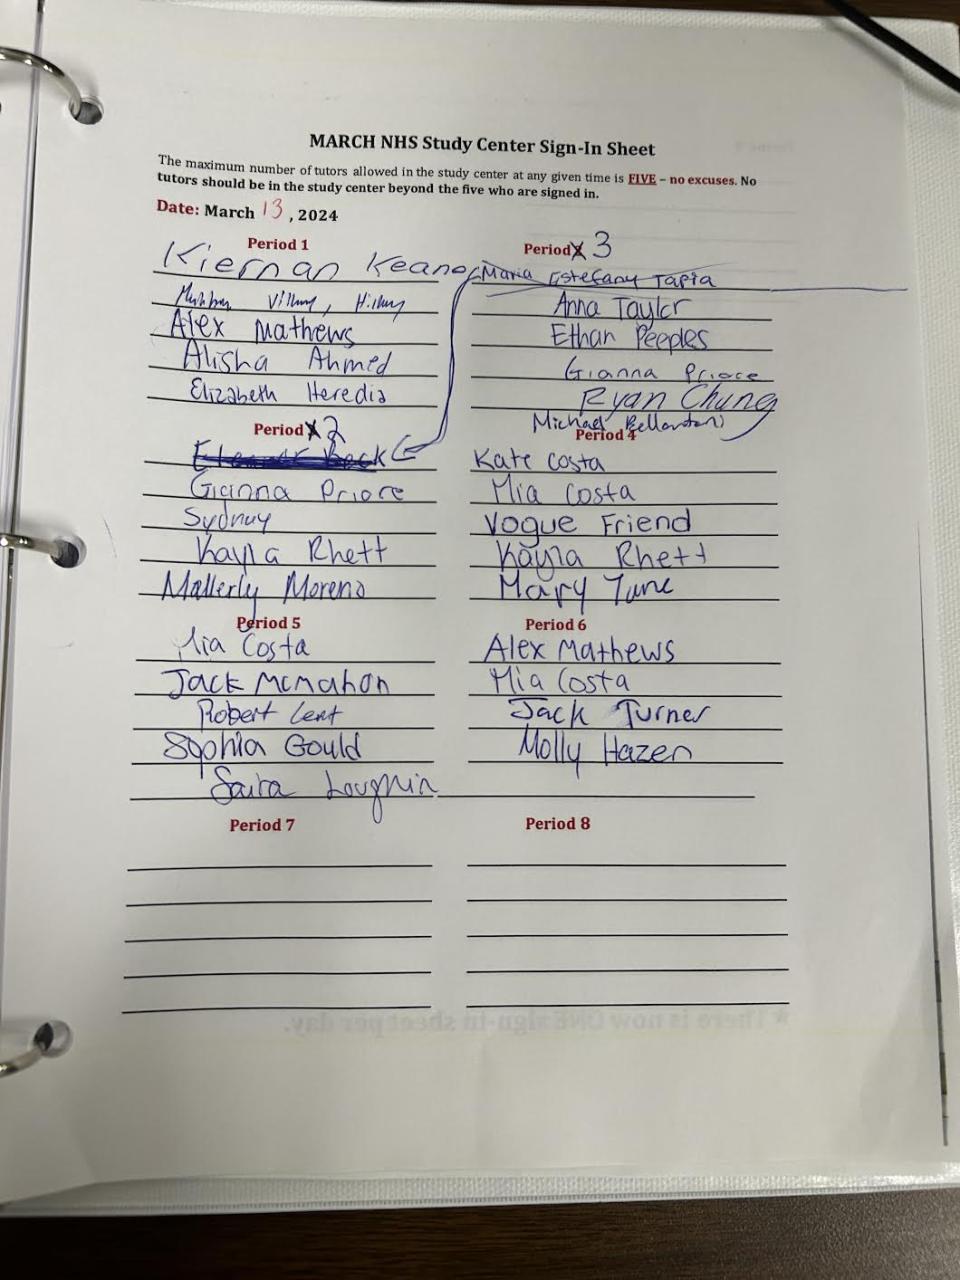 MARCH NHS Study Center Sign-In Sheet
The maximum number of tutors allowed in the study center at any given time is FIVE – no excuses. No
tutors should be in the study center beyond the five who are signed in.
Date: March 13, 2024
Period 1
Kiernan Keane
Hillary
Alex Mathews
Alisha Ahmed
Elizabeth Heredia
Period 2
Beck
Gianna Priore
Sydney
Kayla Rhett
Mallerly Moreno
Period 3
Maria Estefany Tapia
Anna Taylor
Ethan Peeples
Gianna Priore
Ryan Chung
Michael
Period 4
Kate Costa
Mia Costa
Vogue Friend
Kayla Rhett
Mary Tune
Period 5
Mia Costa
Jack McMahon
Robert Lent
Sophia Gould
Period 6
Alex Mathews
Mia Costa
Jack Turner
Molly Hazen
Period 7
Period 8